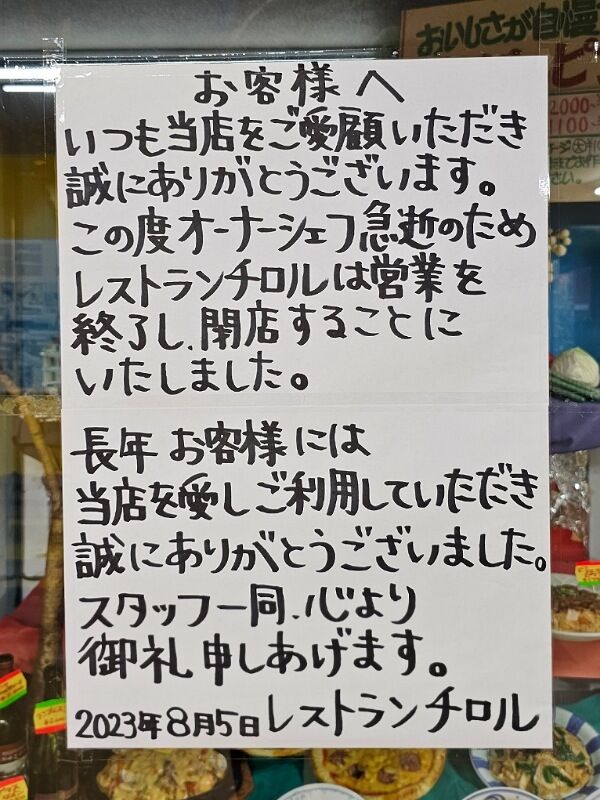 お客様へ
いつも当店をご愛顧いただき
誠にありがとうございます。
この度オーナーシェフ急逝のため
レストランチロルは営業を
終了し、閉店することに
いたしました。
長年お客様には
当店を愛しご利用していただき
誠にありがとうございました。
スタッフ一同、心より
御礼申しあげます。
2023年8月5日 レストランチロル
おいしさが自慢